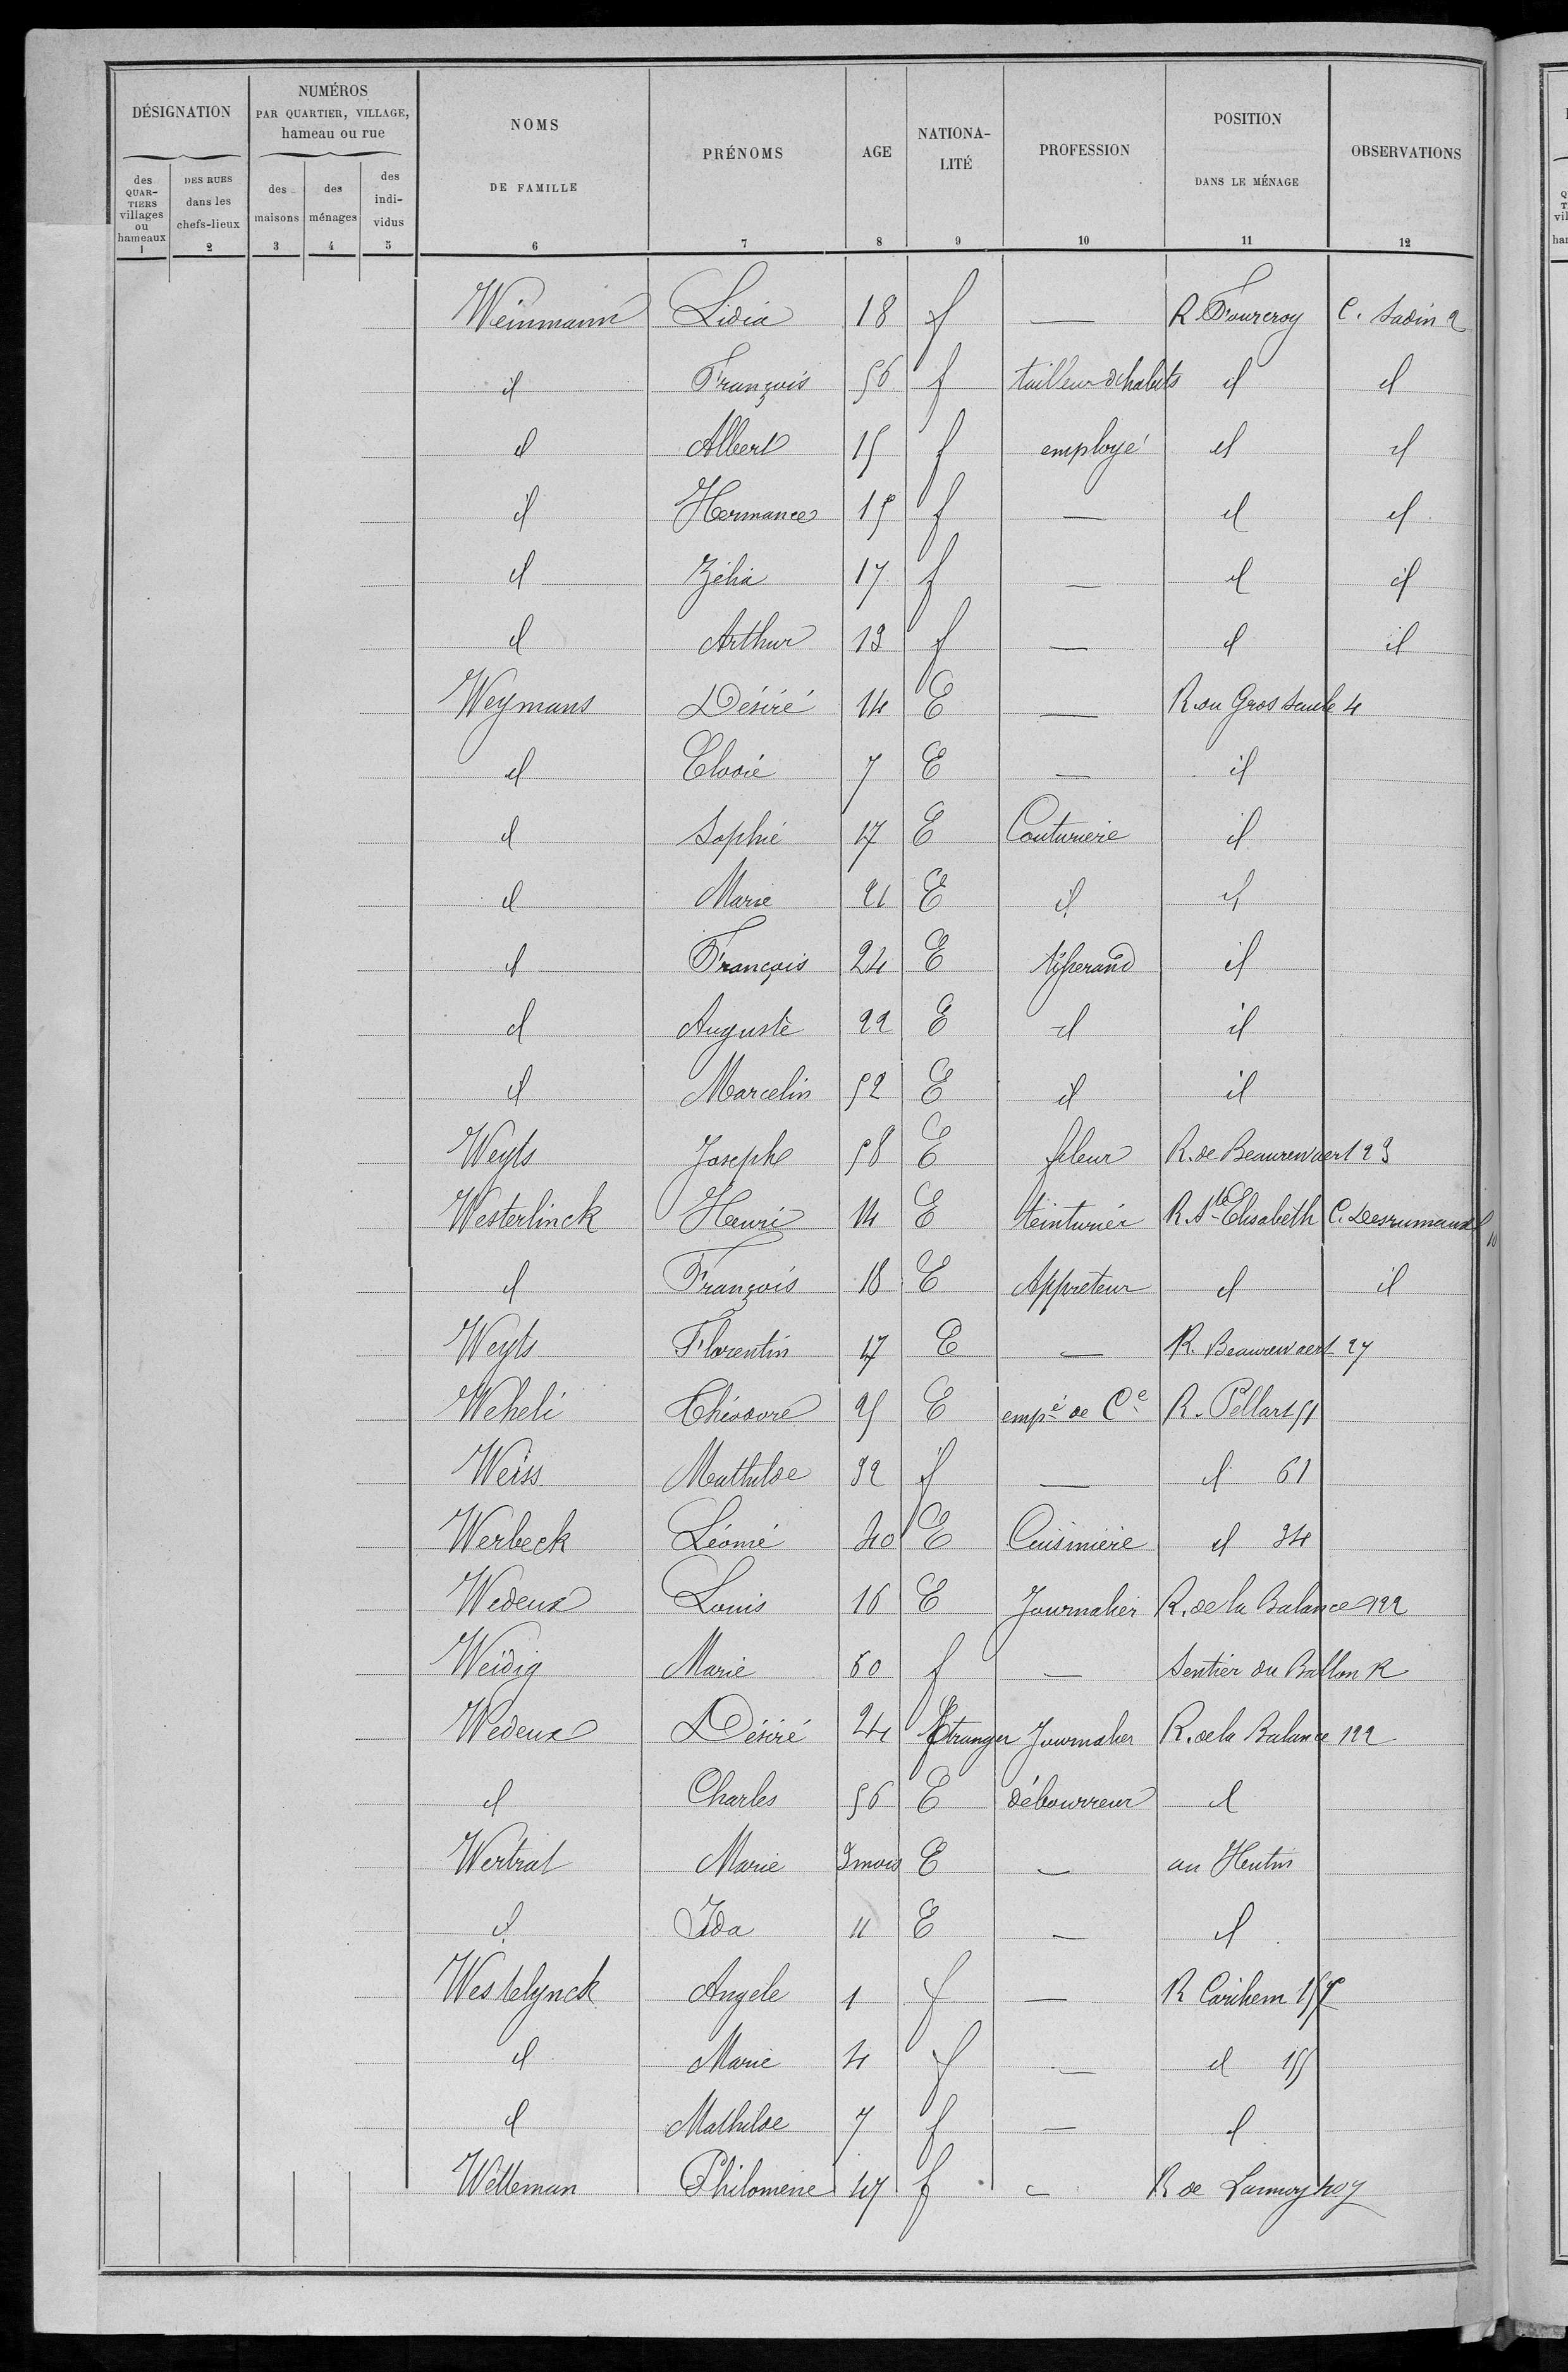 DÉSIGNATION
NUMÉROS
PAR QUARTIER, VILLAGE,
hameau ou rue
NOMS
DE FAMILLE
PRÉNOMS
AGE
NATIONA-
LITÉ
PROFESSION
POSITION
DANS LE MÉNAGE
OBSERVATIONS
des QUAR-TIERS villages ou hameaux
DES RUES dans les chefs-lieux
des maisons
des ménages
des indi-vidus
1 2 3 4 5 6 7 8 9 10 11 12
Weinmann Lidia 18 f — R. Fourcroy C. Sadin 2
id François 56 f tailleur d'habits id id
id Albert 15 f employé id id
id Hermance 15 f — id id
id Zélia 17 f — id id
id Arthur 13 f — id id
Weymans Désiré 14 E — R. du Gros Saule 4
id Elodie 7 E — id
id Sophie 17 E Couturière id
id Marie 21 E id id
id François 24 E tisserand id
id Auguste 22 E id id
id Marcelin 52 E id id
Weyts Joseph 58 E fileur R. de Beaurewaert 23
Westerlinck Henri 14 E teinturier R. Ste Elisabeth C. Desrumaux 10
id François 18 E Appreteur id id
Weyts Florentin 17 E — R. Beaurewaert 27
Weheli Théodore 25 E empé de Ce R. Pellart 51
Weiss Mathilde 32 f — id 61
Werbeck Léonie 40 E Cuisinière id 34
Wedeux Louis 16 E Journalier R. de la Balance 122
Weidig Marie 60 f — Sentier du Ballon
Wedeux Désiré 24 Etranger Journalier R. de la Balance 122
id Charles 56 E débourreur id
Wertrat Marie 3 mois E — au Hutin
id Ida 11 E — id
Westelynck Angele 1 f — R Carihem 157
id Marie 4 f — id 155
id Mathilde 7 f — id
Welleman Philomene 47 f — R de Lannoy 407